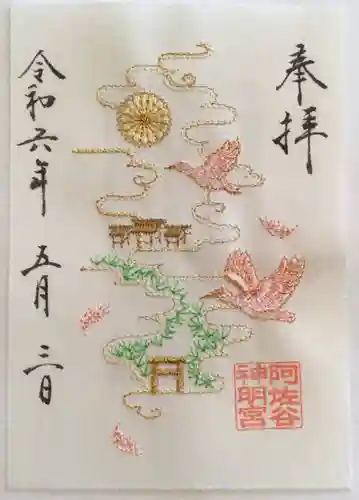 奉拝
阿佐谷
神明宮
令和六年 五月 三日